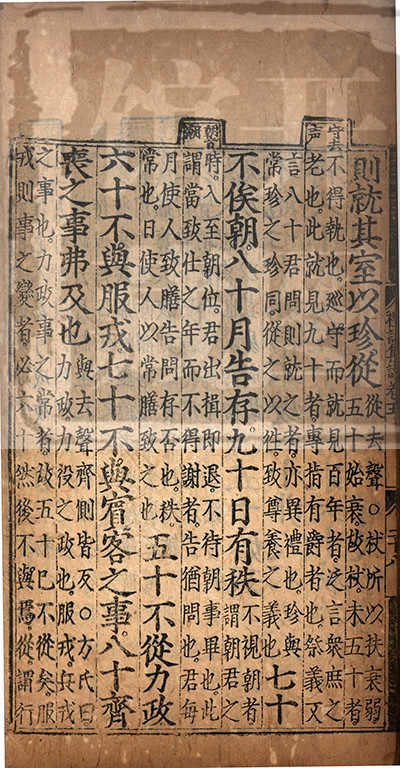 守去声
則就其室以珍從
從去聲○杖所以扶衰弱
五十始衰。故杖。未五十者。
不得執也。巡守而就見百年者。泛言衆庶之
老也。此就見九十者。專指有爵者也。祭義又
言八十君問則就之者。亦異禮也。珍與
常珍之珍同。從之以往。致尊養之義也
七十
不俟朝。八十月告存。九十日有秩
不視朝者。
謂朝君之
時。入至朝位。君出揖即退。不待朝事畢也。此
謂當致仕之年而不得謝者。告猶問也。君每
月使人致膳告問存否也。秩
常也。日使人以常膳致之也
五十不從力政
六十不與服戎。七十不與賓客之事。八十齊
喪之事弗及也
與去聲齊側皆反○方氏曰
力政力役之政也。服戎。兵戎
之事也。力政事之常者。故五十已不從矣。服
戎則事之變者。必六十然後不與焉。從。謂行